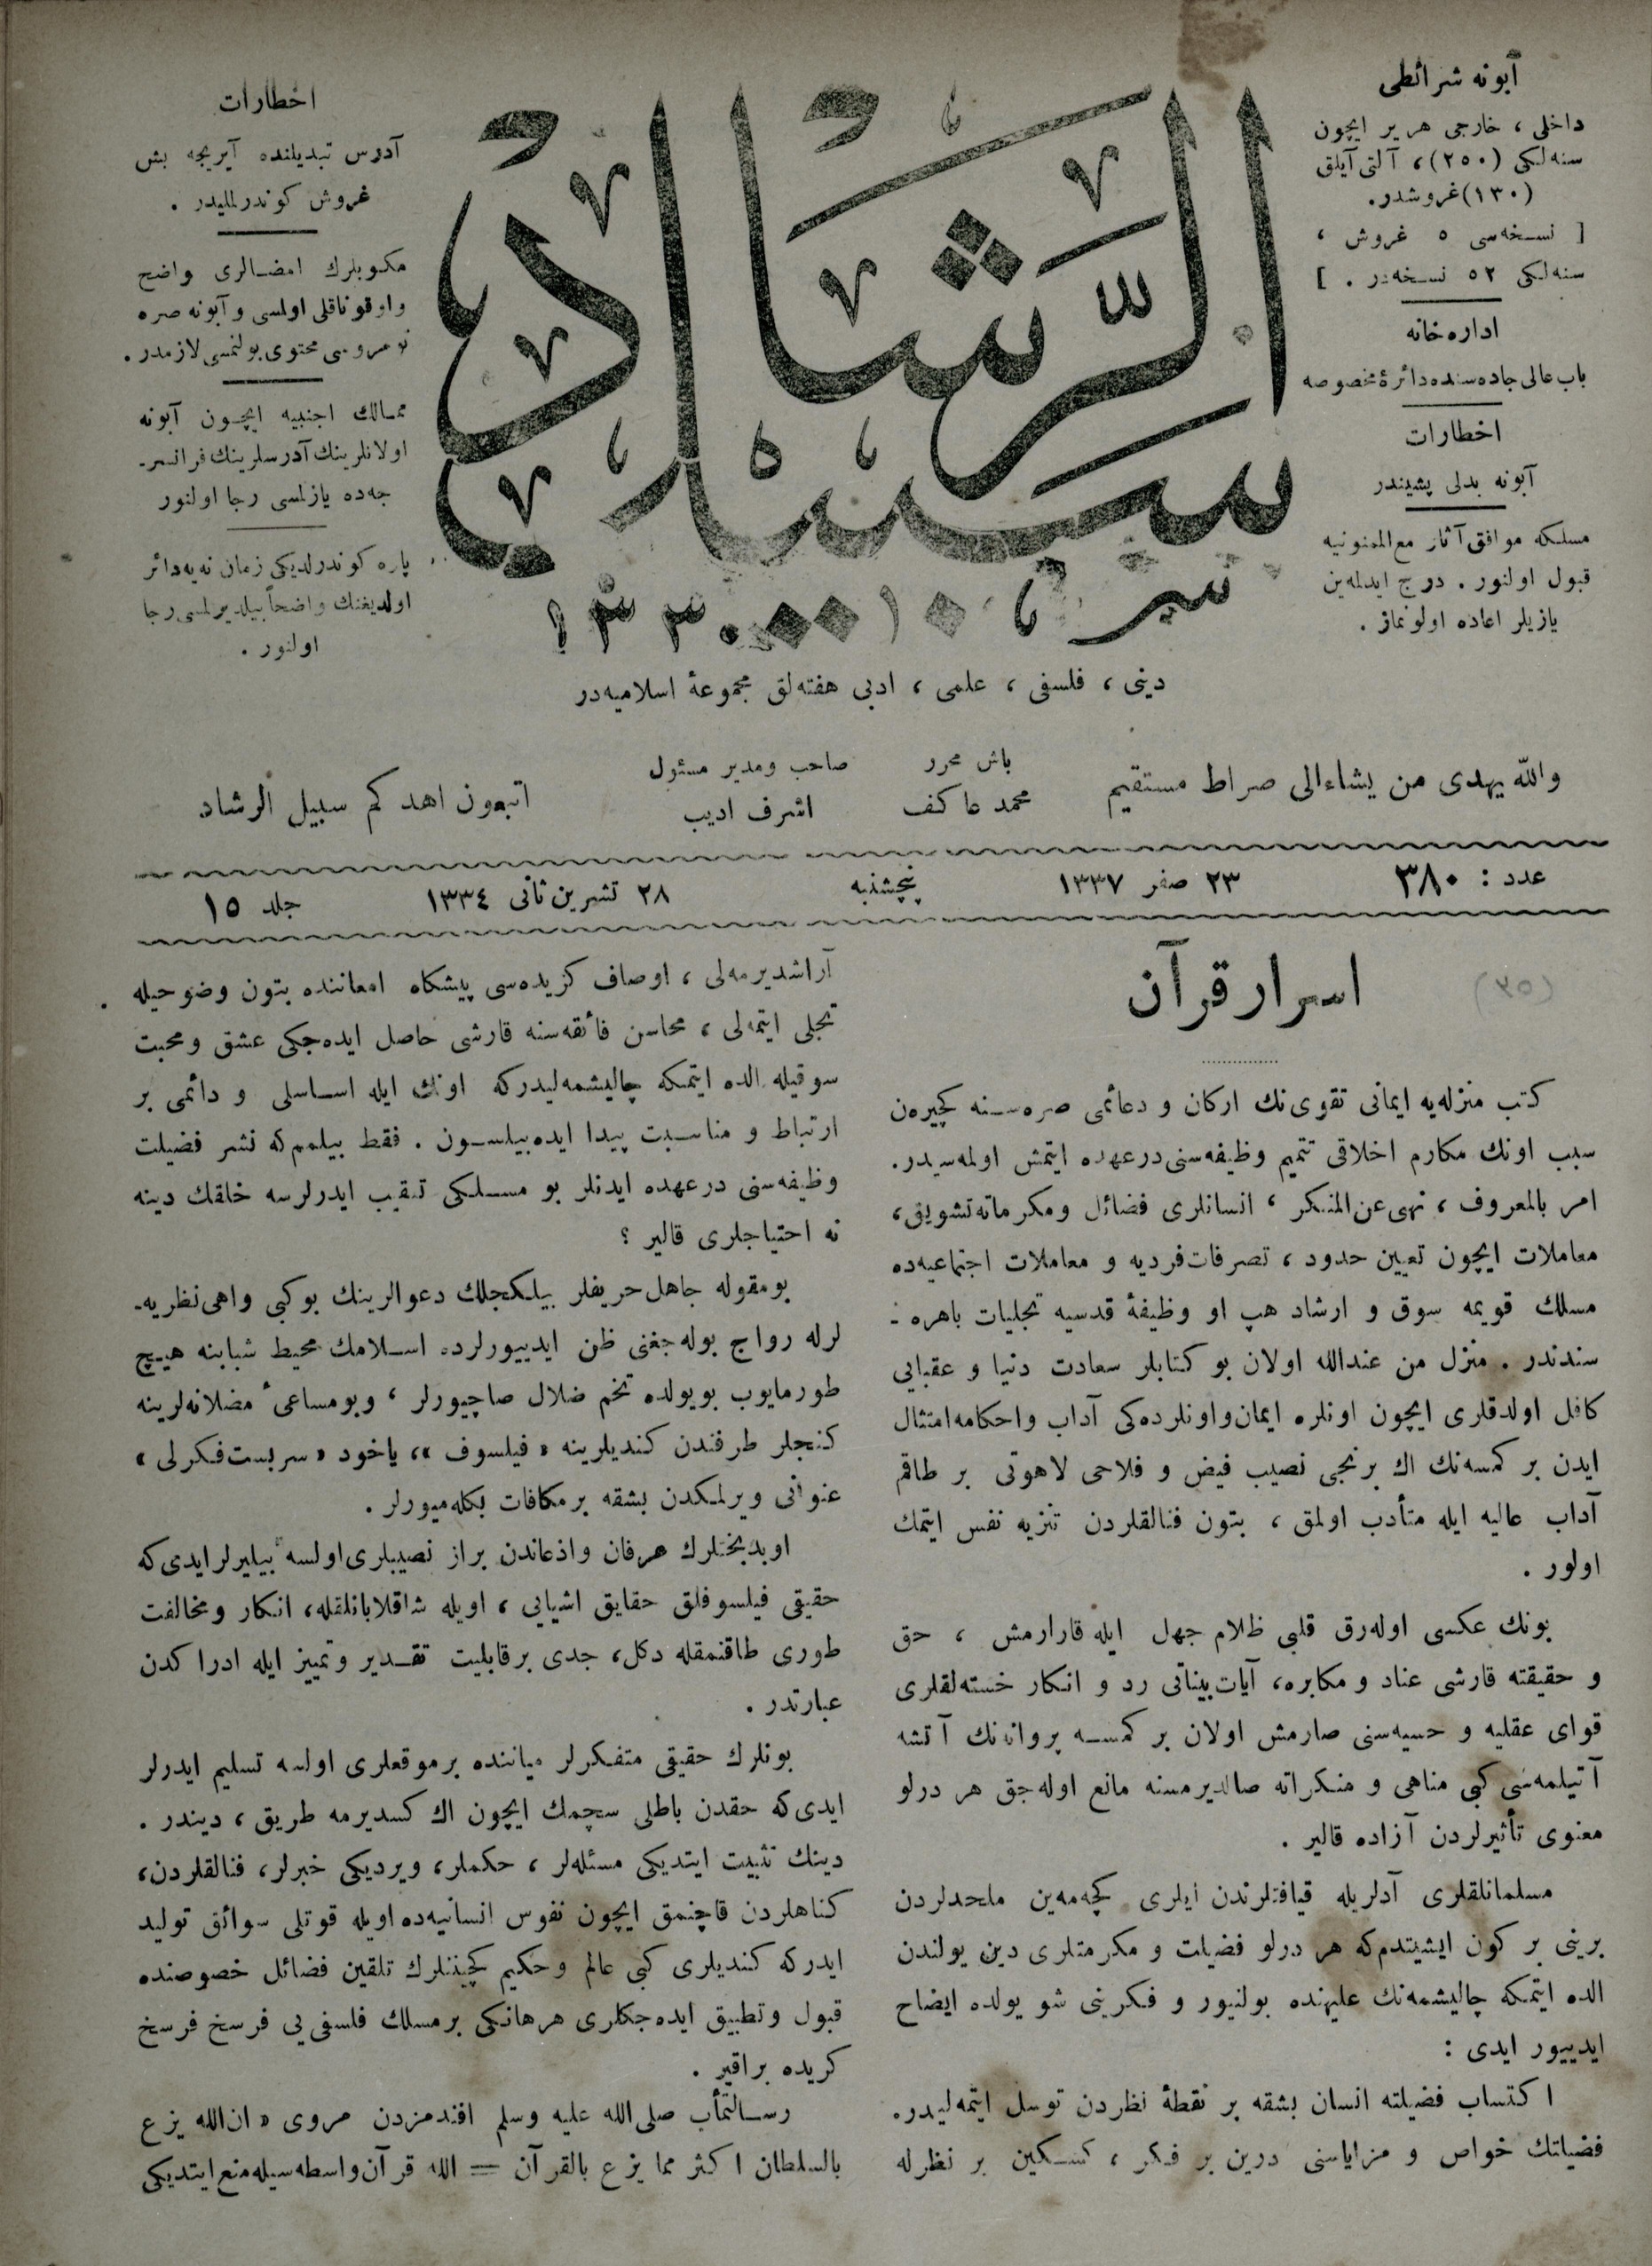 آبونه شرائطی
داخلی ، خارجی هر یر ایچون
سنه‌لکی (٢٥٠) ، آلتی آیلق
(١٣٠) غروشدر .
[ نسخه‌سی ٥ غروش ،
سنه‌لکی ٥٢ نسخه‌در . ]
اداره‌خانه
باب عالی جاده‌سنده دائرهٔ مخصوصه
اخطارات
آبونه بدلی پشیندر
مسلکه موافق آثار مع‌الممنونیه
قبول اولنور . درج ایدلمه‌ین
یازیلر اعاده اولونماز .
سبیل الرشاد
١٣٣٠
اخطارات
آدرس تبدیلنده آیریجه بش
غروش کوندرلملیدر .
مکتوبلرك امضالری واضح
واوقوناقلی اولمسی و آبونه صره
نومروسی محتوی بولنمسی لازمدر .
ممالك اجنبیه ایچون آبونه
اولانلرینك آدرسلرینك فرانسز-
جه‌ده یازلمسی رجا اولنور
پاره کوندرلدیکی زمان نه‌یه‌دائر
اولدیغنك واضحاً بیلدیرلمسی رجا
اولنور .
دینی ، فلسفی ، علمی ، ادبی هفته‌لق مجموعهٔ اسلامیه‌در
والله یهدی من یشاء الی صراط مستقیم
باش محرر
محمد عاکف
صاحب ومدیر مسئول
اشرف ادیب
اتبعون اهدکم سبیل الرشاد
عدد : ٣٨٠
٢٣ صفر ١٣٣٧
پنچشنبه
٢٨ تشرین ثانی ١٣٣٤
جلد ١٥
اسرار قرآن
(٣٥)
کتب منزله‌یه ایمانی تقوی‌نك ارکان و دعائمی صره‌سنه کچیره‌ن
سبب اونك مکارم اخلاقی تتمیم وظیفه‌سنی درعهده ایتمش اولمه‌سیدر .
امر بالمعروف ، نهی عن المنکر ، انسانلری فضائل ومکرماته تشویق ،
معاملات ایچون تعیین حدود ، تصرفات فردیه و معاملات اجتماعیه‌ده
مسلك قویمه سوق و ارشاد هپ او وظیفهٔ قدسیه تجلیات باهره -
سندندر . منزل من عندالله اولان بو کتابلر سعادت دنیا و عقبایی
کافل اولدقلری ایچون اونلره ایمان واونلرده‌کی آداب واحکامه امتثال
ایدن بر کمسه‌نك اك برنجی نصیب فیض و فلاحی لاهوتی بر طاقم
آداب عالیه ایله متأدب اولمق ، بتون فنالقلردن تنزیه نفس ایتمك
اولور .
بونك عکسی اوله‌رق قلبی ظلام جهل ایله قارارمش ، حق
و حقیقته قارشی عناد و مکابره ، آیات بیناتی رد و انکار خسته‌لقلری
قوای عقلیه و حسیه‌سنی صارمش اولان بر کمسه پروانه‌نك آتشه
آتیلمه‌سی کبی مناهی و منکراته صالدیرمسنه مانع اوله‌جق هر درلو
معنوی تأثیرلردن آزاده قالیر .
مسلمانلقلری آدلریله قیافتلرندن ایلری کچه‌مه‌ین ملحدلردن
برینی بر کون ایشیتدم که هر درلو فضیلت و مکرمتلری دین یولندن
الده ایتمکه چالیشمه‌نك علیهنده بولنیور و فکرینی شو یولده ایضاح
ایدییور ایدی :
اکتساب فضیلته انسان بشقه بر نقطهٔ نظردن توسل ایتمه‌لیدر .
فضیلتك خواص و مزایاسنی درین بر فکر ، کسکین بر نظرله
آراشدیرمه‌لی ، اوصاف کزیده‌سی پیشکاه امعاننده بتون وضوحیله
تجلی ایتمه‌لی ، محاسن فائقه‌سنه قارشی حاصل ایده‌جکی عشق و محبت
سوقیله الده ایتمکه چالیشمه‌لیدرکه اونك ایله اساسلی و دائمی بر
ارتباط و مناسبت پیدا ایده‌بیلسون . فقط بیلمم‌که نشر فضیلت
وظیفه‌سنی درعهده ایدنلر بو مسلکی تعقیب ایدرلرسه خلقك دینه
نه احتیاجلری قالیر ؟
بومقوله جاهل حریفلر بیلکجلك دعوالرینك بوکبی واهی نظریه-
لرله رواج بوله‌جغنی ظن ایدییورلرده اسلامك محیط شبابنه هیچ
طورمایوب بویولده تخم ضلال صاچیورلر ، وبومساعیٔ مضلانه‌لرینه
کنجلر طرفندن کندیلرینه « فیلسوف » ، یاخود « سربست فکرلی »
عنوانی ویرلمکدن بشقه بر مکافات بکله‌میورلر .
اوبدبختلرك عرفان واذعاندن براز نصیبلری اولسه بیلیرلر ایدی که
حقیقی فیلسوفلق حقایق اشیایی ، اویله شاقلابانلقله ، انکار ومخالفت
طوری طاقنمقله دکل ، جدی برقابلیت تقدیر وتمییز ایله ادراکدن
عبارتدر .
بونلرك حقیقی متفکرلر میاننده برموقعلری اولسه تسلیم ایدرلر
ایدی که حقدن باطلی سچمك ایچون اك کسدیرمه طریق ، دیندر .
دینك تثبیت ایتدیکی مسئله‌لر ، حکملر ، ویردیکی خبرلر ، فنالقلردن ،
کناهلردن قاچنمق ایچون نفوس انسانیه‌ده اویله قوتلی سوائق تولید
ایدرکه کندیلری کبی عالم وحکیم کچیننلرك تلقین فضائل خصوصنده
قبول وتطبیق ایده‌جکلری هرهانکی برمسلك فلسفی‌یی فرسخ فرسخ
کریده براقیر .
رسالتمأب صلی الله علیه وسلم افندمزدن مروی « ان الله یزع
بالسلطان اکثر مما یزع بالقرآن = الله قرآن واسطه‌سیله منع ایتدیکی